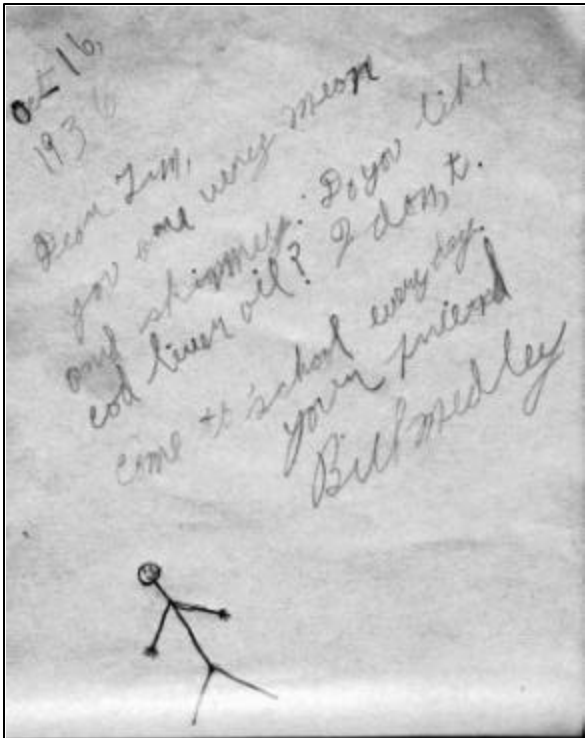 Oct 16,
1936
Dear Jim,
you are very mean
and skinney. Do you like
cod liver oil? I don,t.
come to school every day.
your friend
Bill Medley